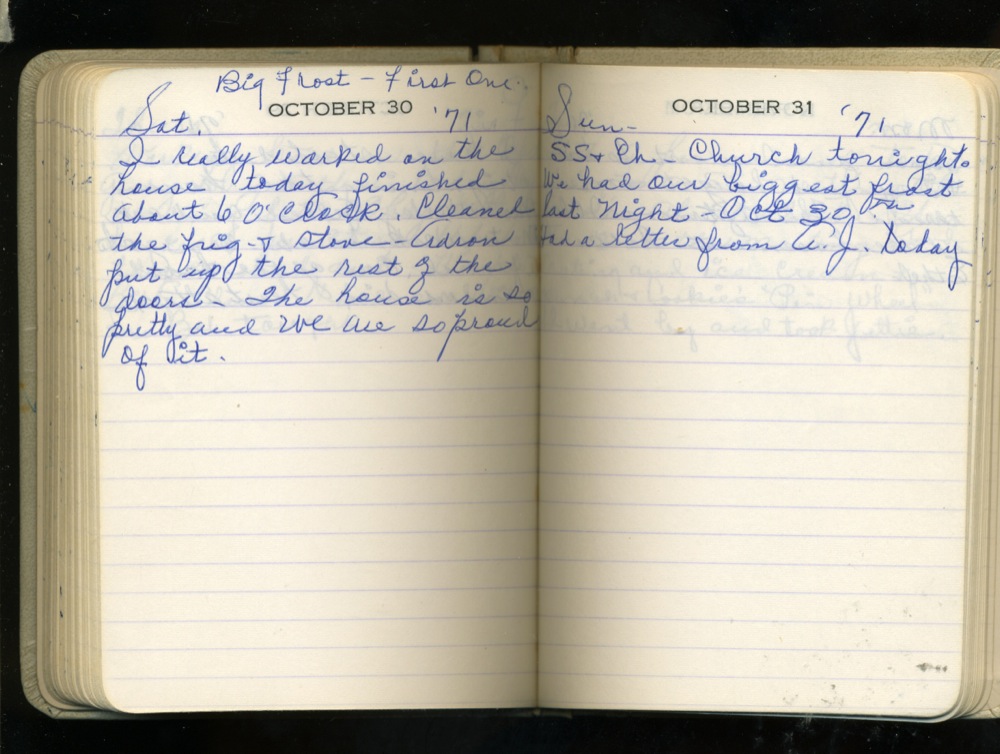 Big Frost - First One.
OCTOBER 30
Sat. '71
I really worked on the
house today finished
about 6 O'Clock. Cleaned
the frig + stove - Adron
put up the rest of the
doors - The house is so
pretty and we are so proud
of it.
OCTOBER 31
Sun- '71
SS + Ch - Church tonight.
We had our biggest frost
last night - Oct 30th.
Had a letter from A. J. today